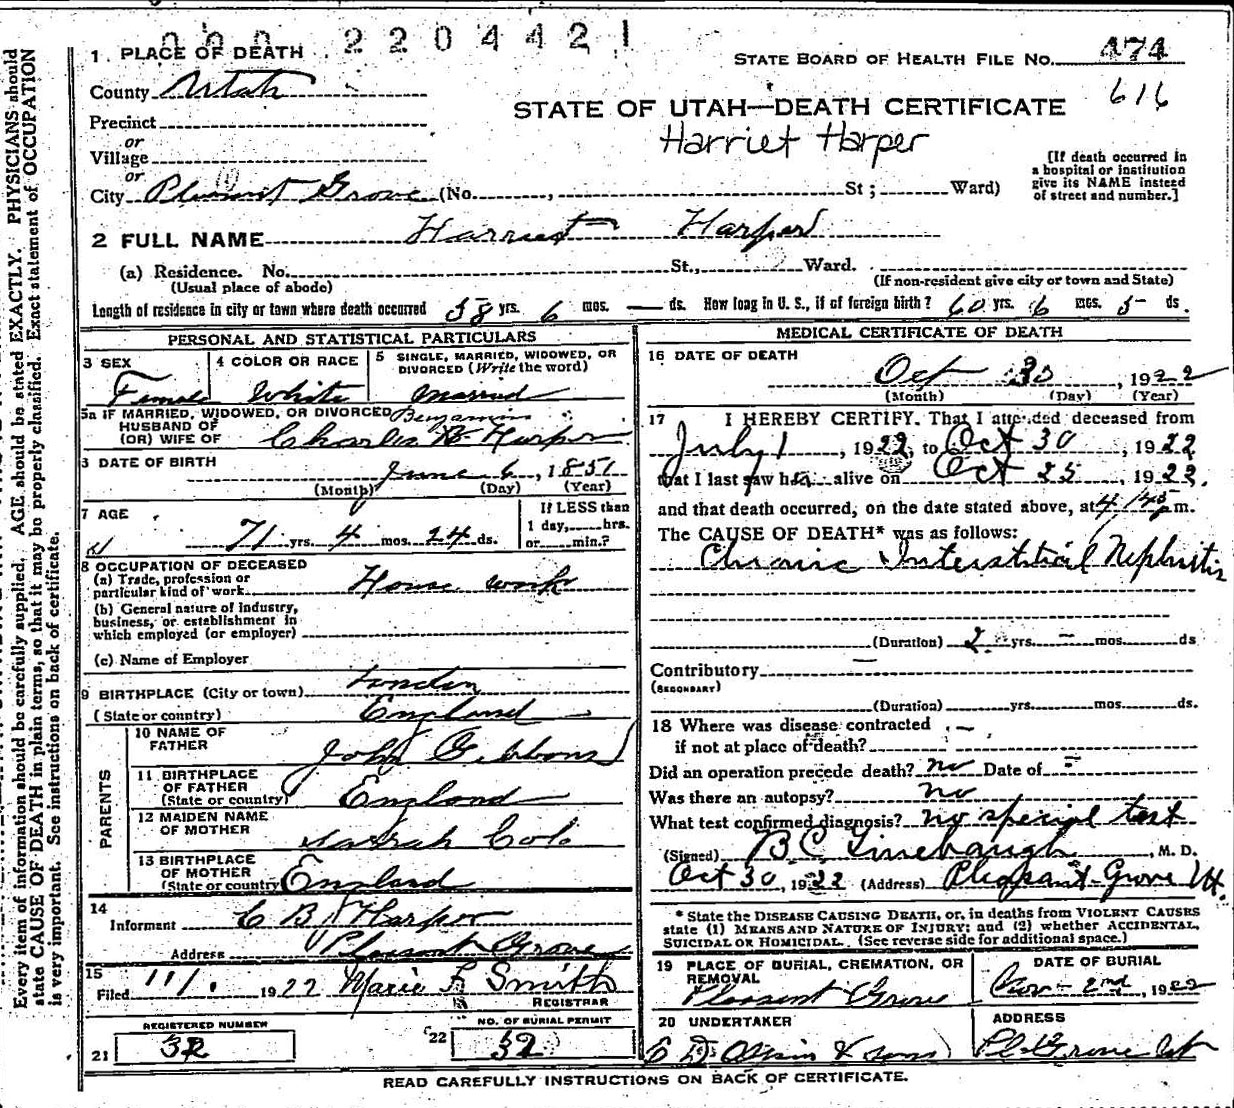 000 220442 1
1 PLACE OF DEATH
STATE BOARD OF HEALTH FILE No. 474
County Utah
616
STATE OF UTAH—DEATH CERTIFICATE
Precinct
Harriet Harper
or
Village
or
City Pleasant Grove (No. , St ; Ward)
[If death occurred in
a hospital or institution
give its NAME instead
of street and number.]
2 FULL NAME Harriet Harper
(a) Residence. No. St., Ward.
(Usual place of abode)
(If non-resident give city or town and State)
Length of residence in city or town where death occurred 58 yrs. 6 mos. — ds. How long in U. S., if of foreign birth? 60 yrs. 6 mos. 5 ds.
PERSONAL AND STATISTICAL PARTICULARS
3 SEX
Female
4 COLOR OR RACE
White
5 SINGLE, MARRIED, WIDOWED, OR
DIVORCED (Write the word)
Married
5a IF MARRIED, WIDOWED, OR DIVORCED Benjamin
HUSBAND OF
(OR) WIFE OF Charles B Harper
DATE OF BIRTH
June 6, 1851
(Month) (Day) (Year)
7 AGE
71 yrs. 4 mos. 24 ds.
If LESS than
1 day, hrs.
or min.?
8 OCCUPATION OF DECEASED
(a) Trade, profession or
particular kind of work House work
(b) General nature of industry,
business, or establishment in
which employed (or employer)
(c) Name of Employer
9 BIRTHPLACE (City or town) London
(State or country) England
PARENTS
10 NAME OF
FATHER John Gibbons
11 BIRTHPLACE
OF FATHER
(State or country) England
12 MAIDEN NAME
OF MOTHER Sarrah Cole
13 BIRTHPLACE
OF MOTHER
(State or country) England
14
Informant C B Harper
Address Pleasant Grove
15
Filed 11/1. 1922 Marie L Smith
REGISTRAR
REGISTERED NUMBER
21 32
NO. OF BURIAL PERMIT
22 32
MEDICAL CERTIFICATE OF DEATH
16 DATE OF DEATH
Oct 30, 1922
(Month) (Day) (Year)
17 I HEREBY CERTIFY. That I attended deceased from
July 1, 1922, to Oct 30, 1922
that I last saw her alive on Oct 25, 1922.
and that death occurred, on the date stated above, at 4:45 p m.
The CAUSE OF DEATH* was as follows:
Chronic Interstitial Nephritis
(Duration) 2 yrs. – mos. ds
Contributory —
(SECONDARY)
(Duration) yrs. mos. ds.
18 Where was disease contracted
if not at place of death? —
Did an operation precede death? no Date of –
Was there an autopsy? no
What test confirmed diagnosis? no special test
(Signed) B C Linebaugh, M. D.
Oct 30, 1922 (Address) Pleasant Grove Ut.
* State the DISEASE CAUSING DEATH, or, in deaths from VIOLENT CAUSES
state (1) MEANS AND NATURE OF INJURY; and (2) whether ACCIDENTAL,
SUICIDAL OR HOMICIDAL. (See reverse side for additional space.)
19 PLACE OF BURIAL, CREMATION, OR
REMOVAL
Pleasant Grove
DATE OF BURIAL
Nov 2nd, 1922
20 UNDERTAKER
& Sons
ADDRESS
Pl Grove Ut
READ CAREFULLY INSTRUCTIONS ON BACK OF CERTIFICATE.
Every item of information should be carefully supplied. AGE should be stated EXACTLY. PHYSICIANS should
state CAUSE OF DEATH in plain terms, so that it may be properly classified. Exact statement of OCCUPATION
is very important. See instructions on back of certificate.